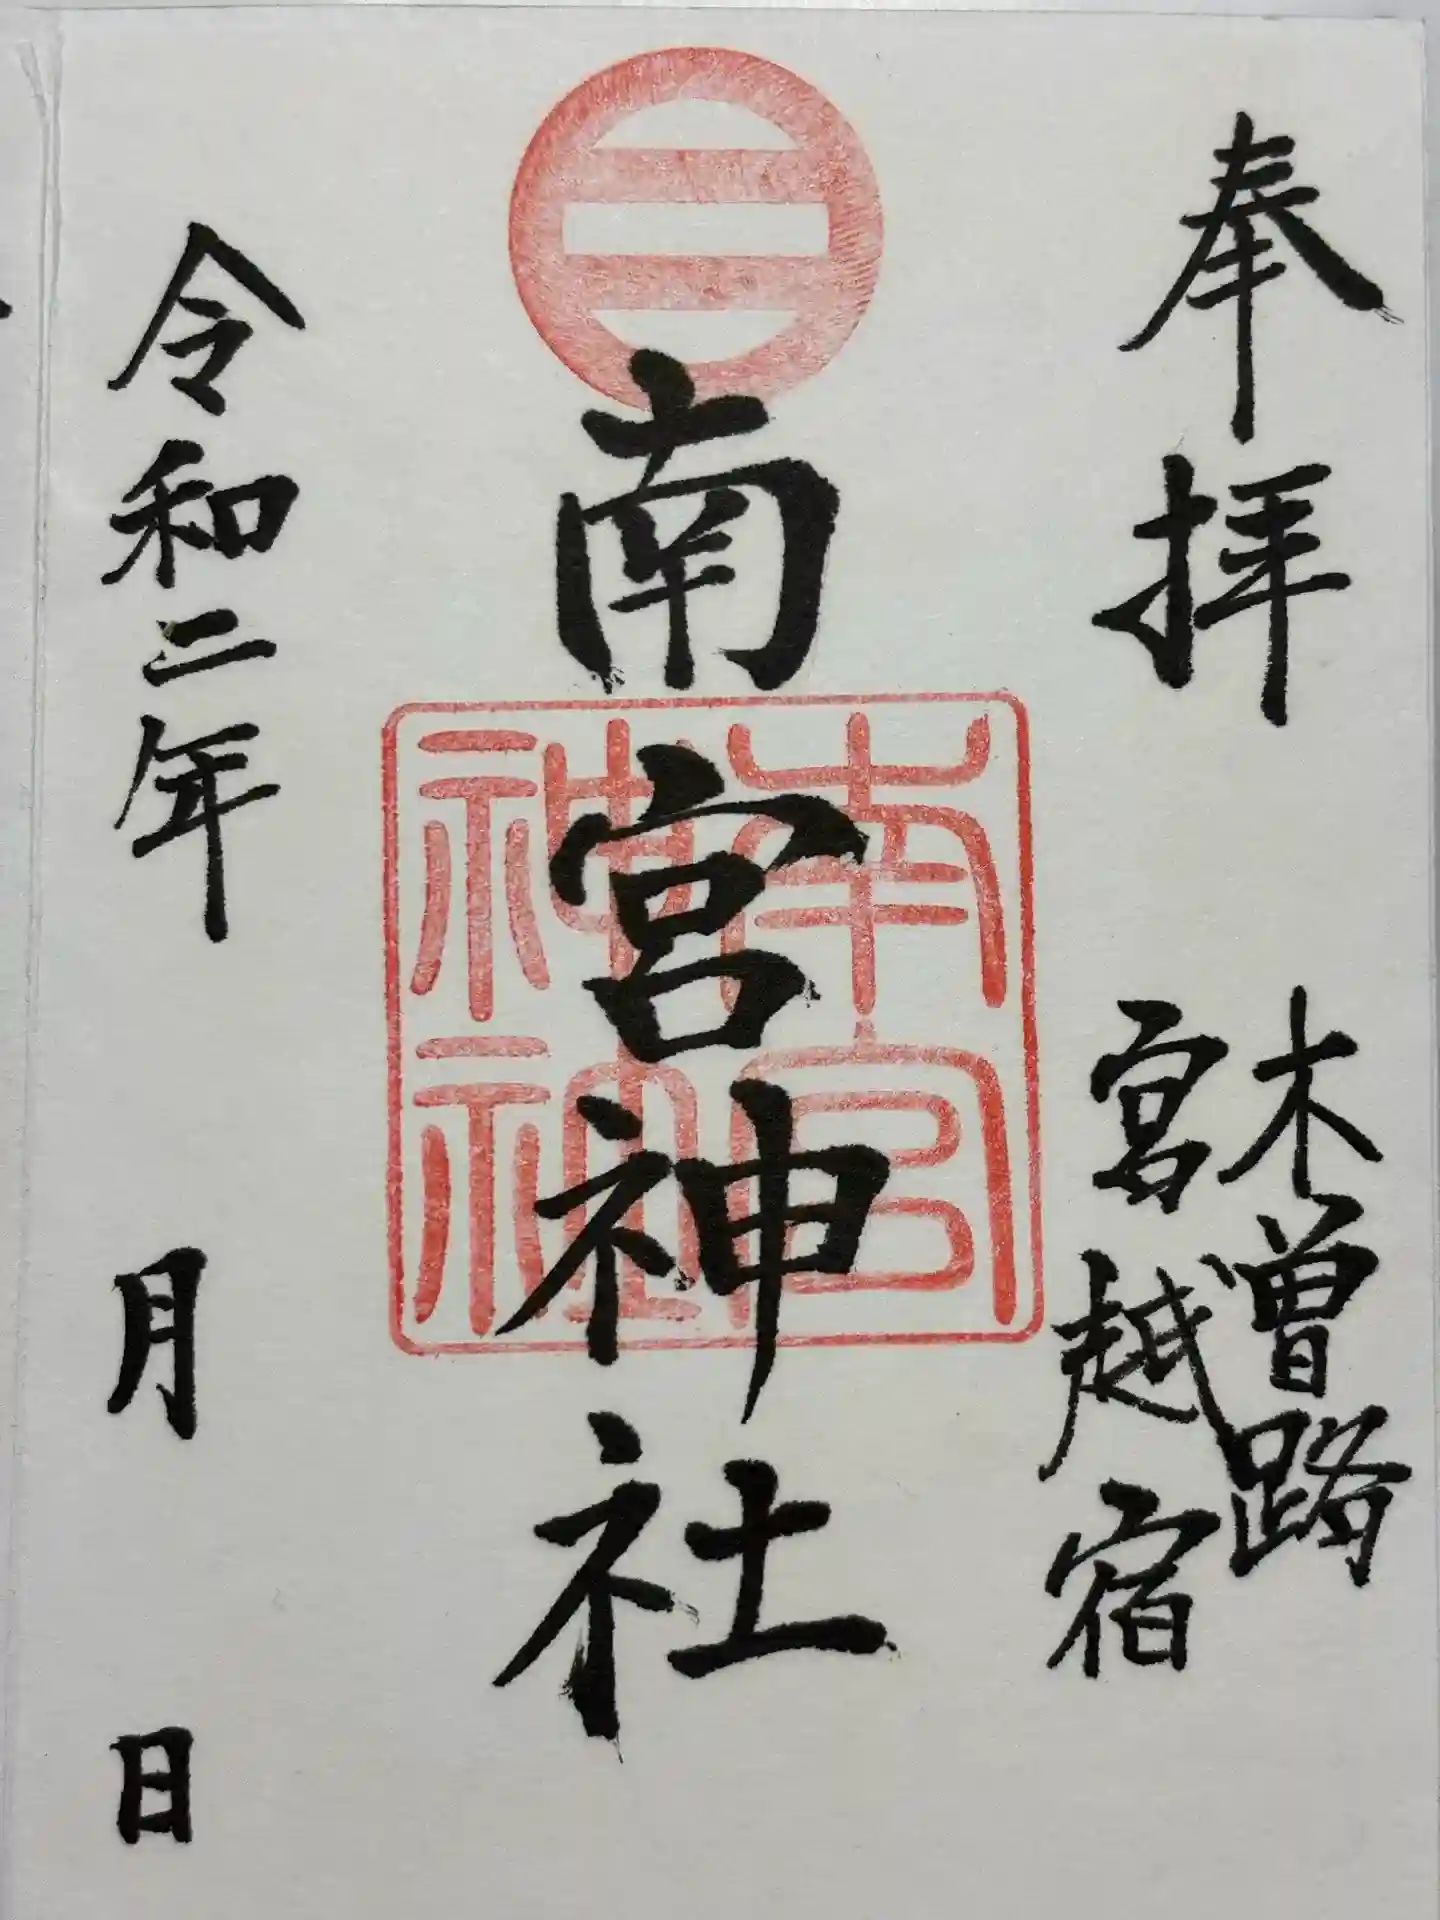 奉拝
木曽路
宮越宿
南宮神社
南宮
神社
令和二年 月 日